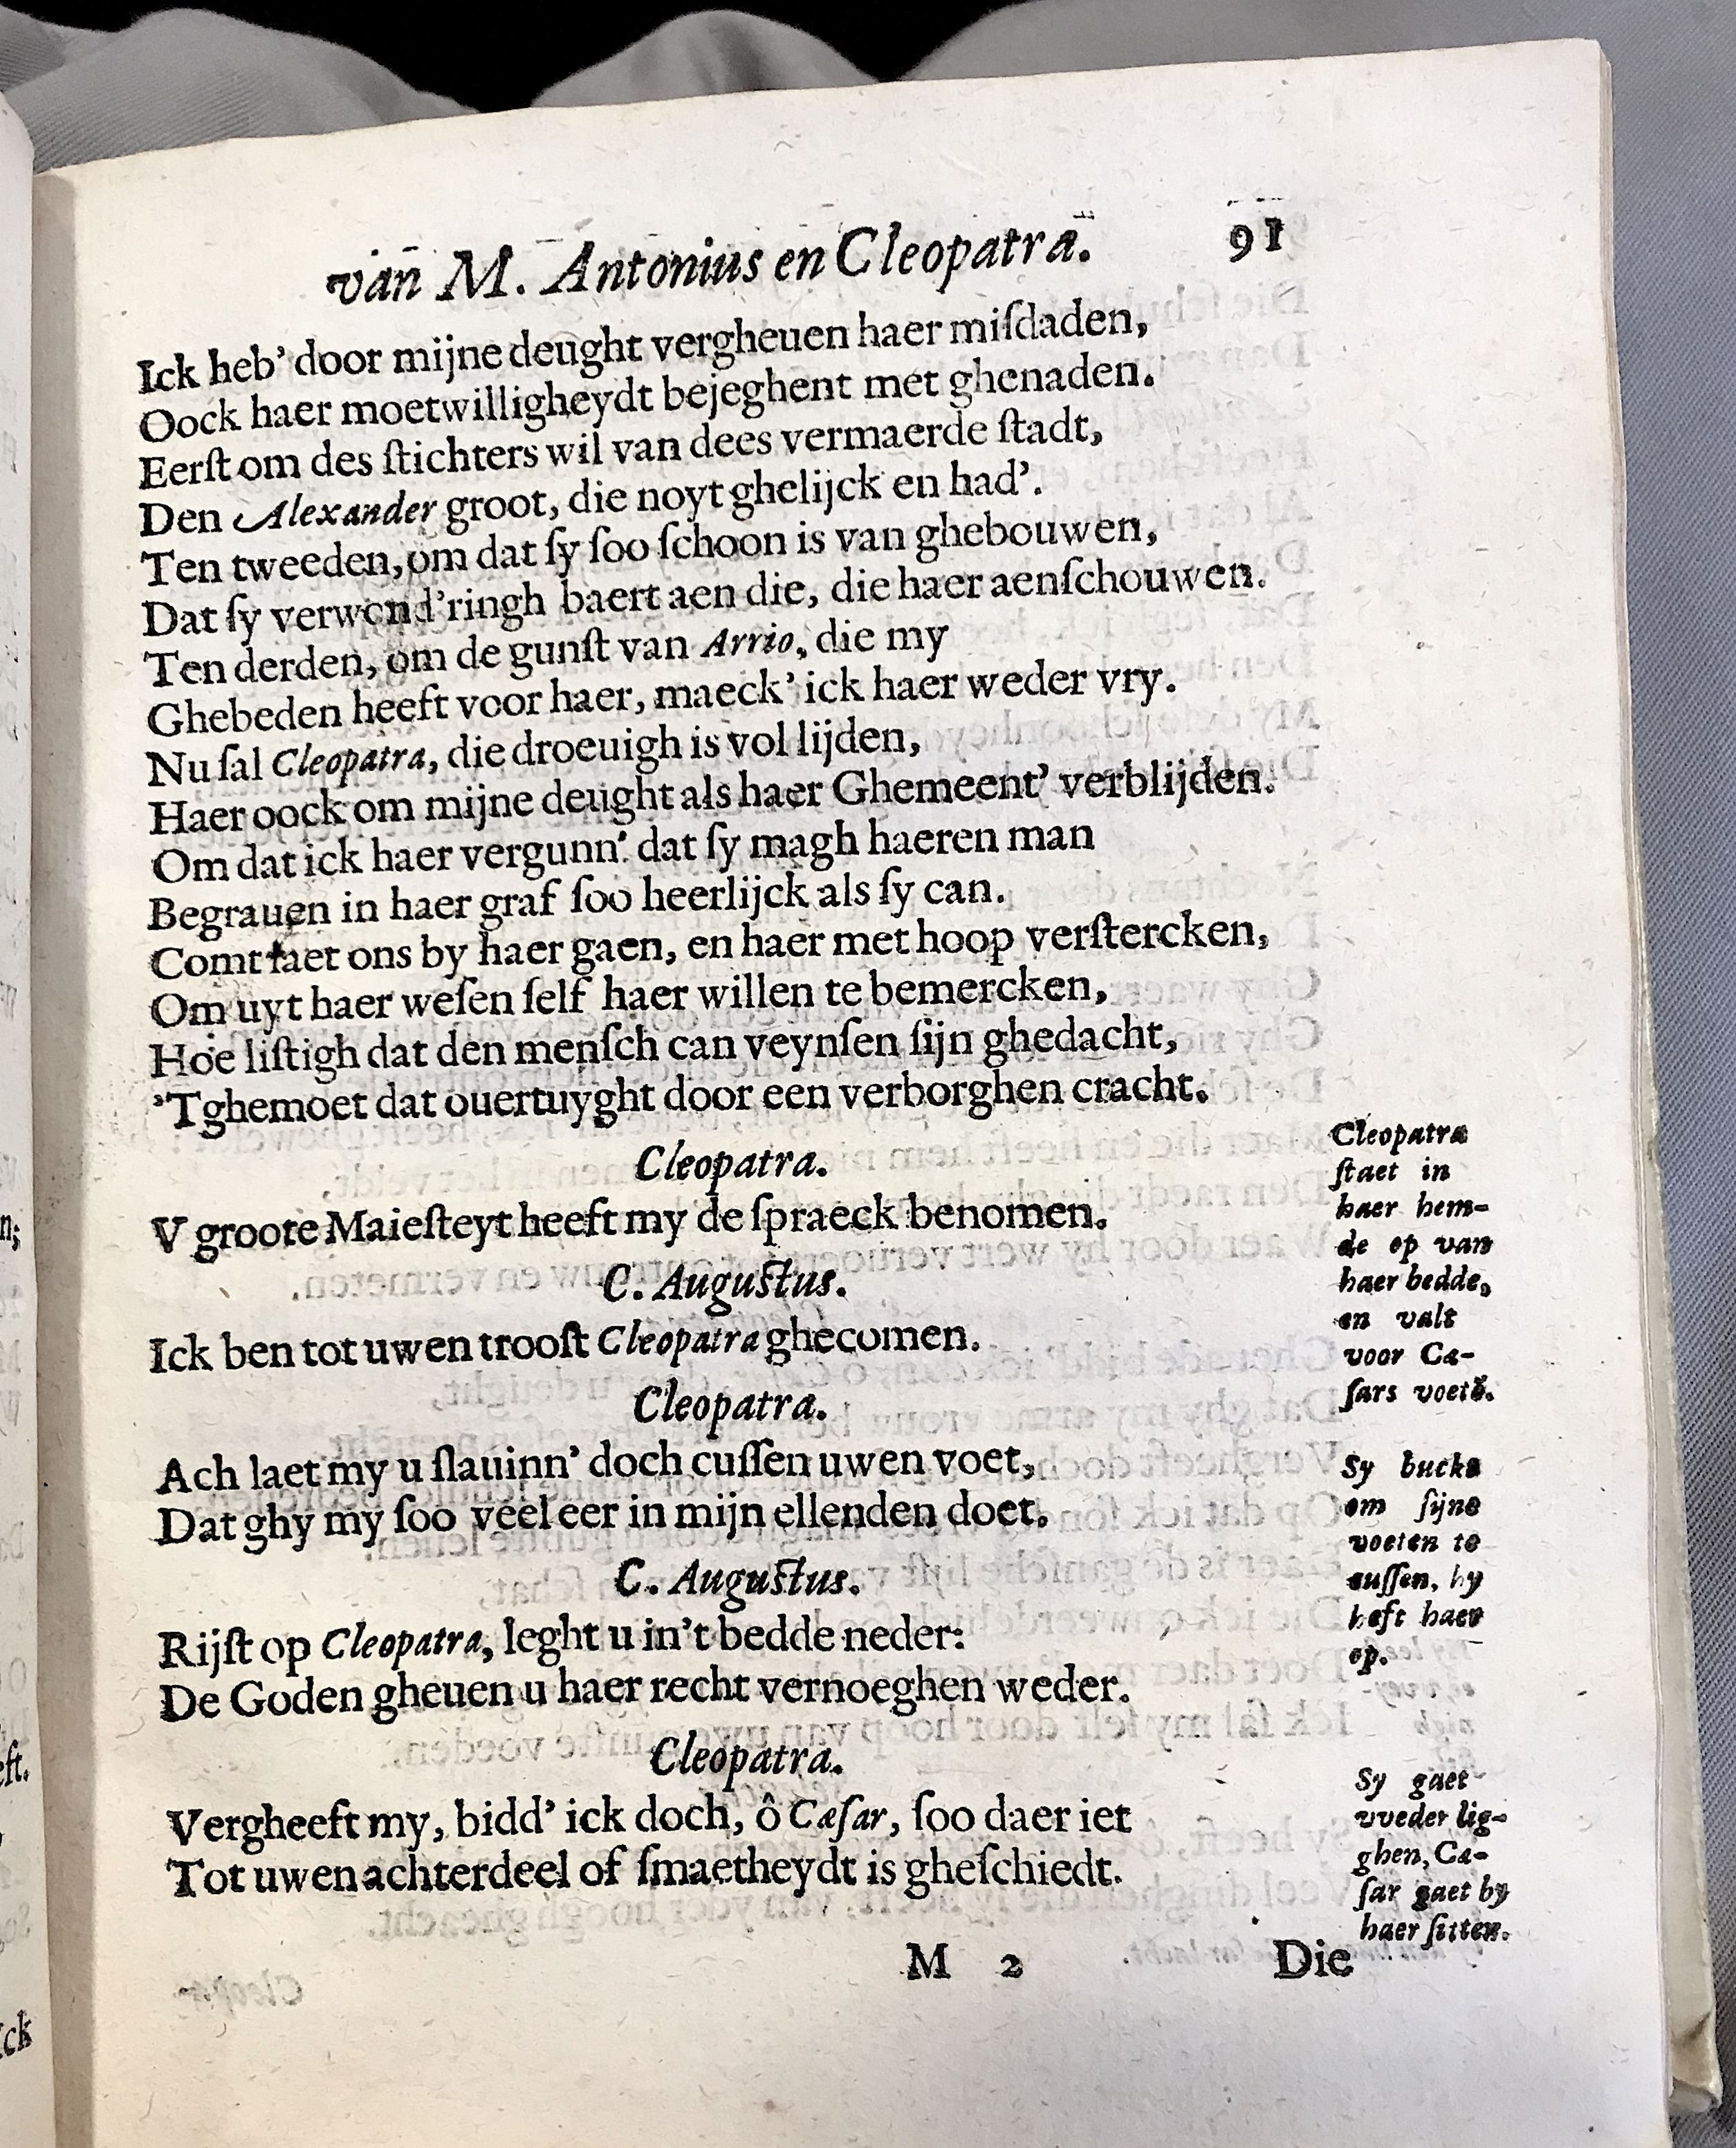 van M. Antonius en Cleopatra. 91
Ick heb' door mijne deught vergheuen haer miſdaden,
Oock haer moetwilligheydt bejeghent met ghenaden.
Eerſt om des ſtichters wil van dees vermaerde ſtadt,
Den Alexander groot, die noyt ghelijck en had'.
Ten tweeden, om dat ſy ſoo ſchoon is van ghebouwen,
Dat ſy verwond'ringh baert aen die, die haer aenſchouwen.
Ten derden, om de gunſt van Arrio, die my
Ghebeden heeft voor haer, maeck' ick haer weder vry.
Nu ſal Cleopatra, die droeuigh is vol lijden,
Haer oock om mijne deught als haer Ghemeent' verblijden.
Om dat ick haer vergunn' dat ſy magh haeren man
Begrauen in haer graf ſoo heerlijck als ſy can.
Comt laet ons by haer gaen, en haer met hoop verſtercken,
Om uyt haer weſen ſelf haer willen te bemercken,
Hoe liſtigh dat den menſch can veynſen ſijn ghedacht,
'Tghemoet dat ouertuyght door een verborghen cracht.
Cleopatra.
V groote Maieſteyt heeft my de ſpraeck benomen.
C. Auguſtus.
Ick ben tot uwen trooſt Cleopatra ghecomen.
Cleopatra.
Ach laet my u ſlauinn' doch cuſſen uwen voet,
Dat ghy my ſoo veel eer in mijn ellenden doet.
C. Auguſtus.
Rijſt op Cleopatra, leght u in't bedde neder:
De Goden gheuen u haer recht vernoeghen weder.
Cleopatra.
Vergheeft my, bidd' ick doch, ô Cæſar, ſoo daer iet
Tot uwen achterdeel of ſmaetheydt is gheſchiedt.
Cleopatra
ſtaet in
haer hem-
de op van
haer bedde,
en valt
voor Cæ-
ſars voetē.
Sy buckt
om ſijne
voeten te
cuſſen, hy
heft haer
op.
Sy gaet
vveder lig-
ghen, Cæ-
ſar gaet by
haer ſitten.
M 2 Die